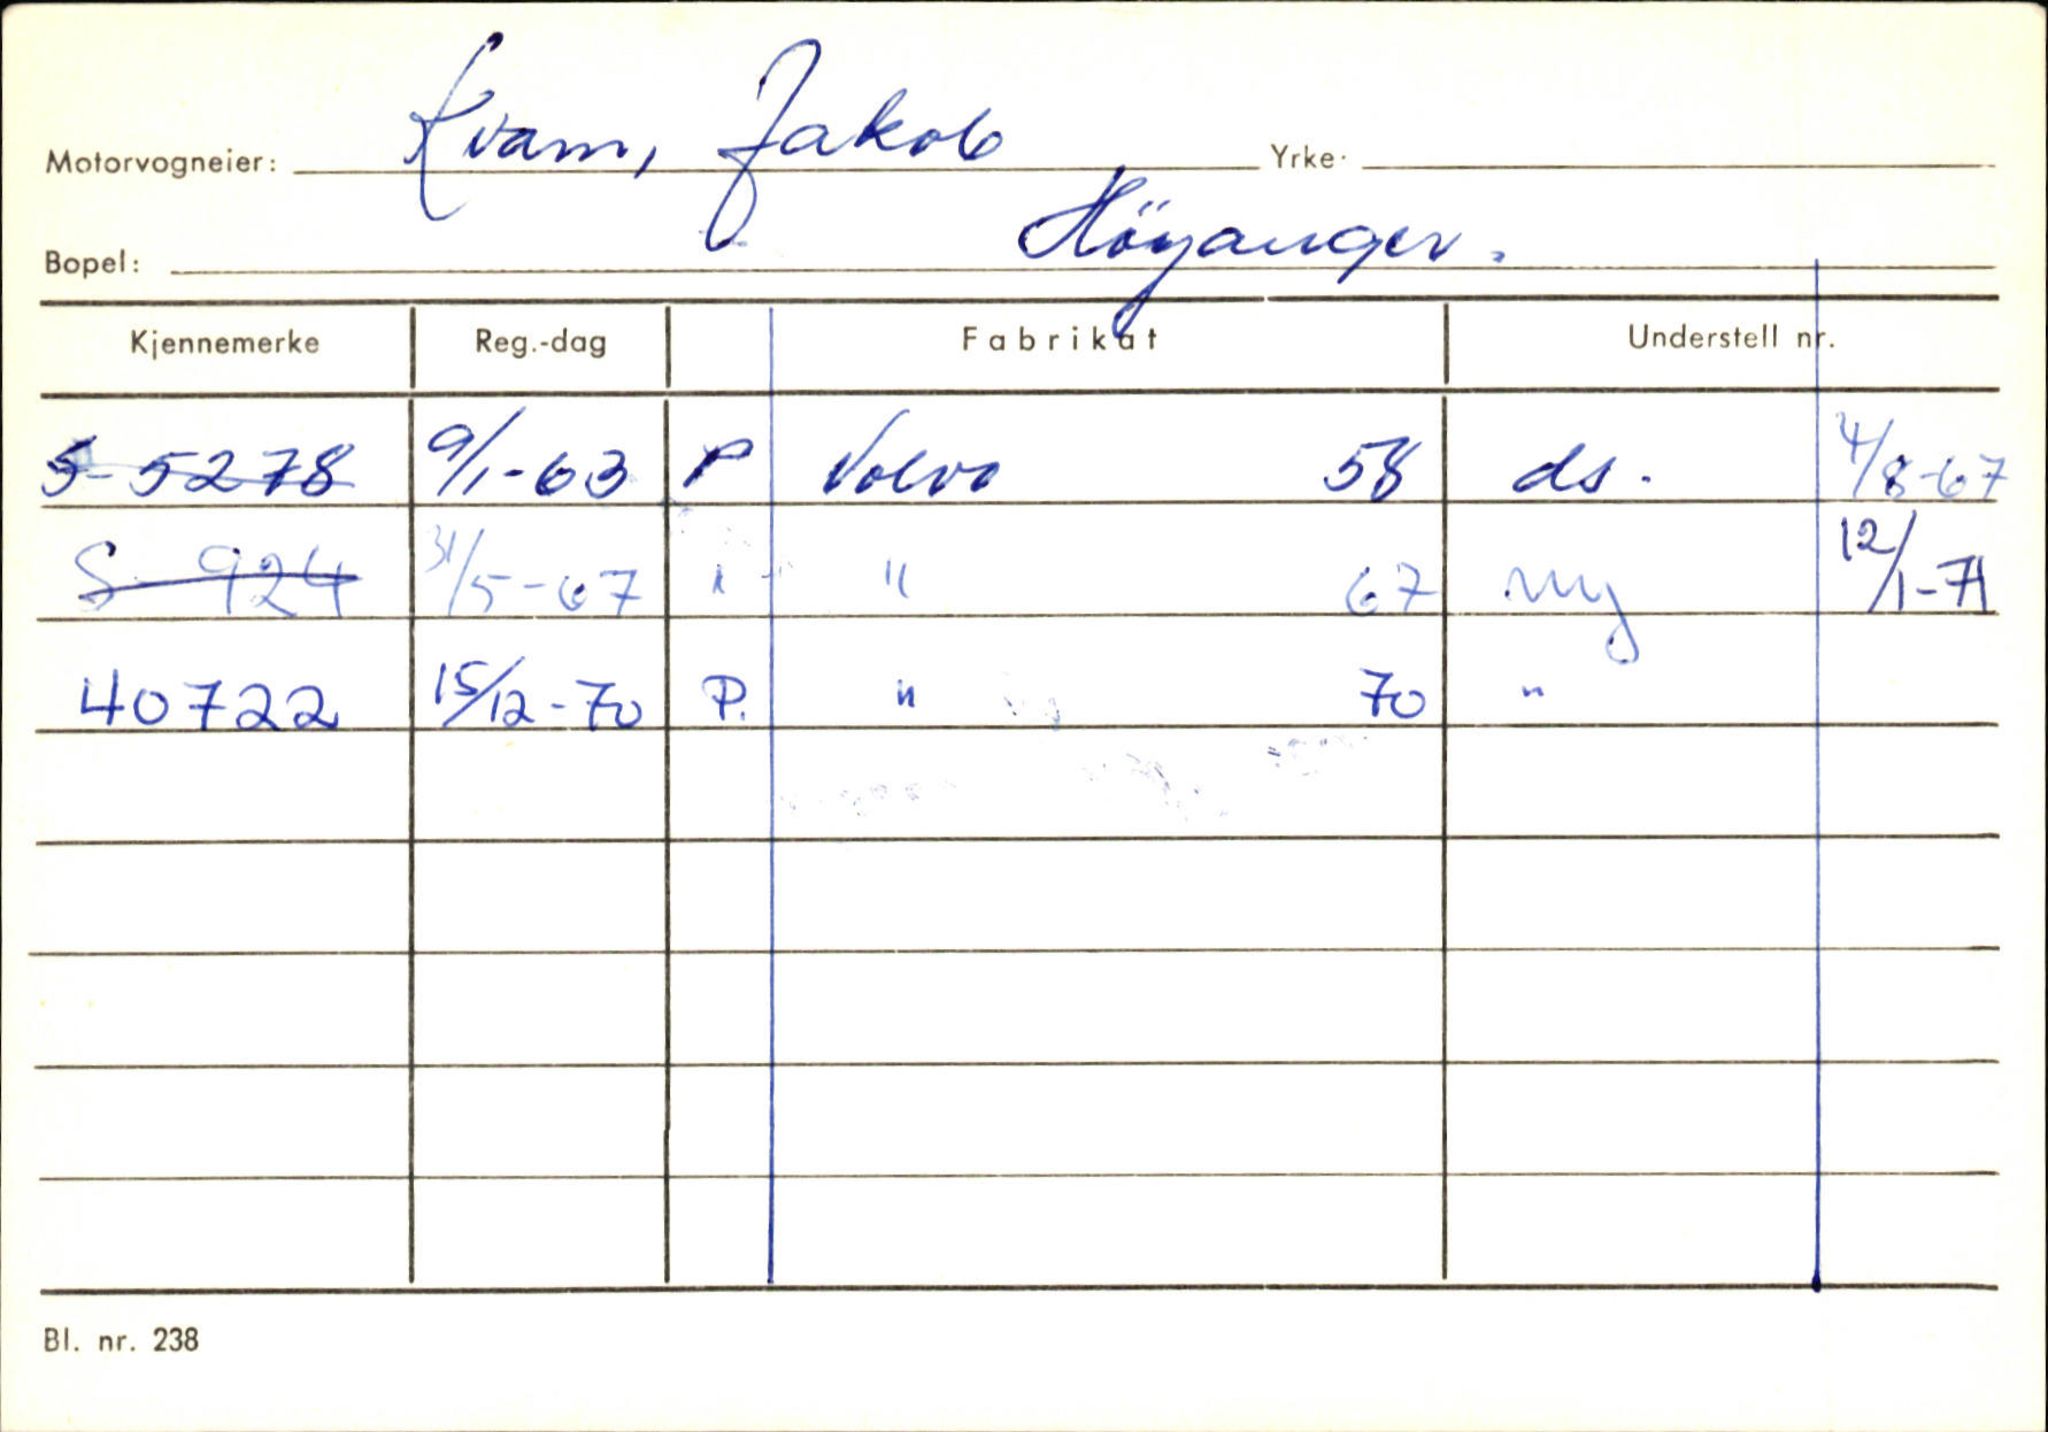 Motorvogneier: Kvam, Jakob Yrke.
Bopel: Höyanger.
Kjennemerke Reg.-dag Fabrikat Understell nr.
S-5278 9/1-63 P Volvo 58 ds. 4/8-67
S-924 31/5-67 " " 67 ny 12/1-71
40722 15/12-70 P. " 70 "
Bl. nr. 238